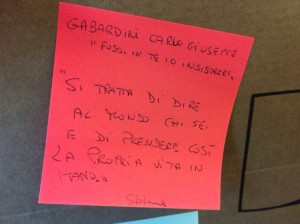 GABARDINI CARLO GIUSEPPE
"FOSSI IN TE IO INSISTEREI"
"SI TRATTA DI DIRE
AL MONDO CHI SEI
E DI PRENDERE COSÌ
LA PROPRIA VITA IN
MANO."